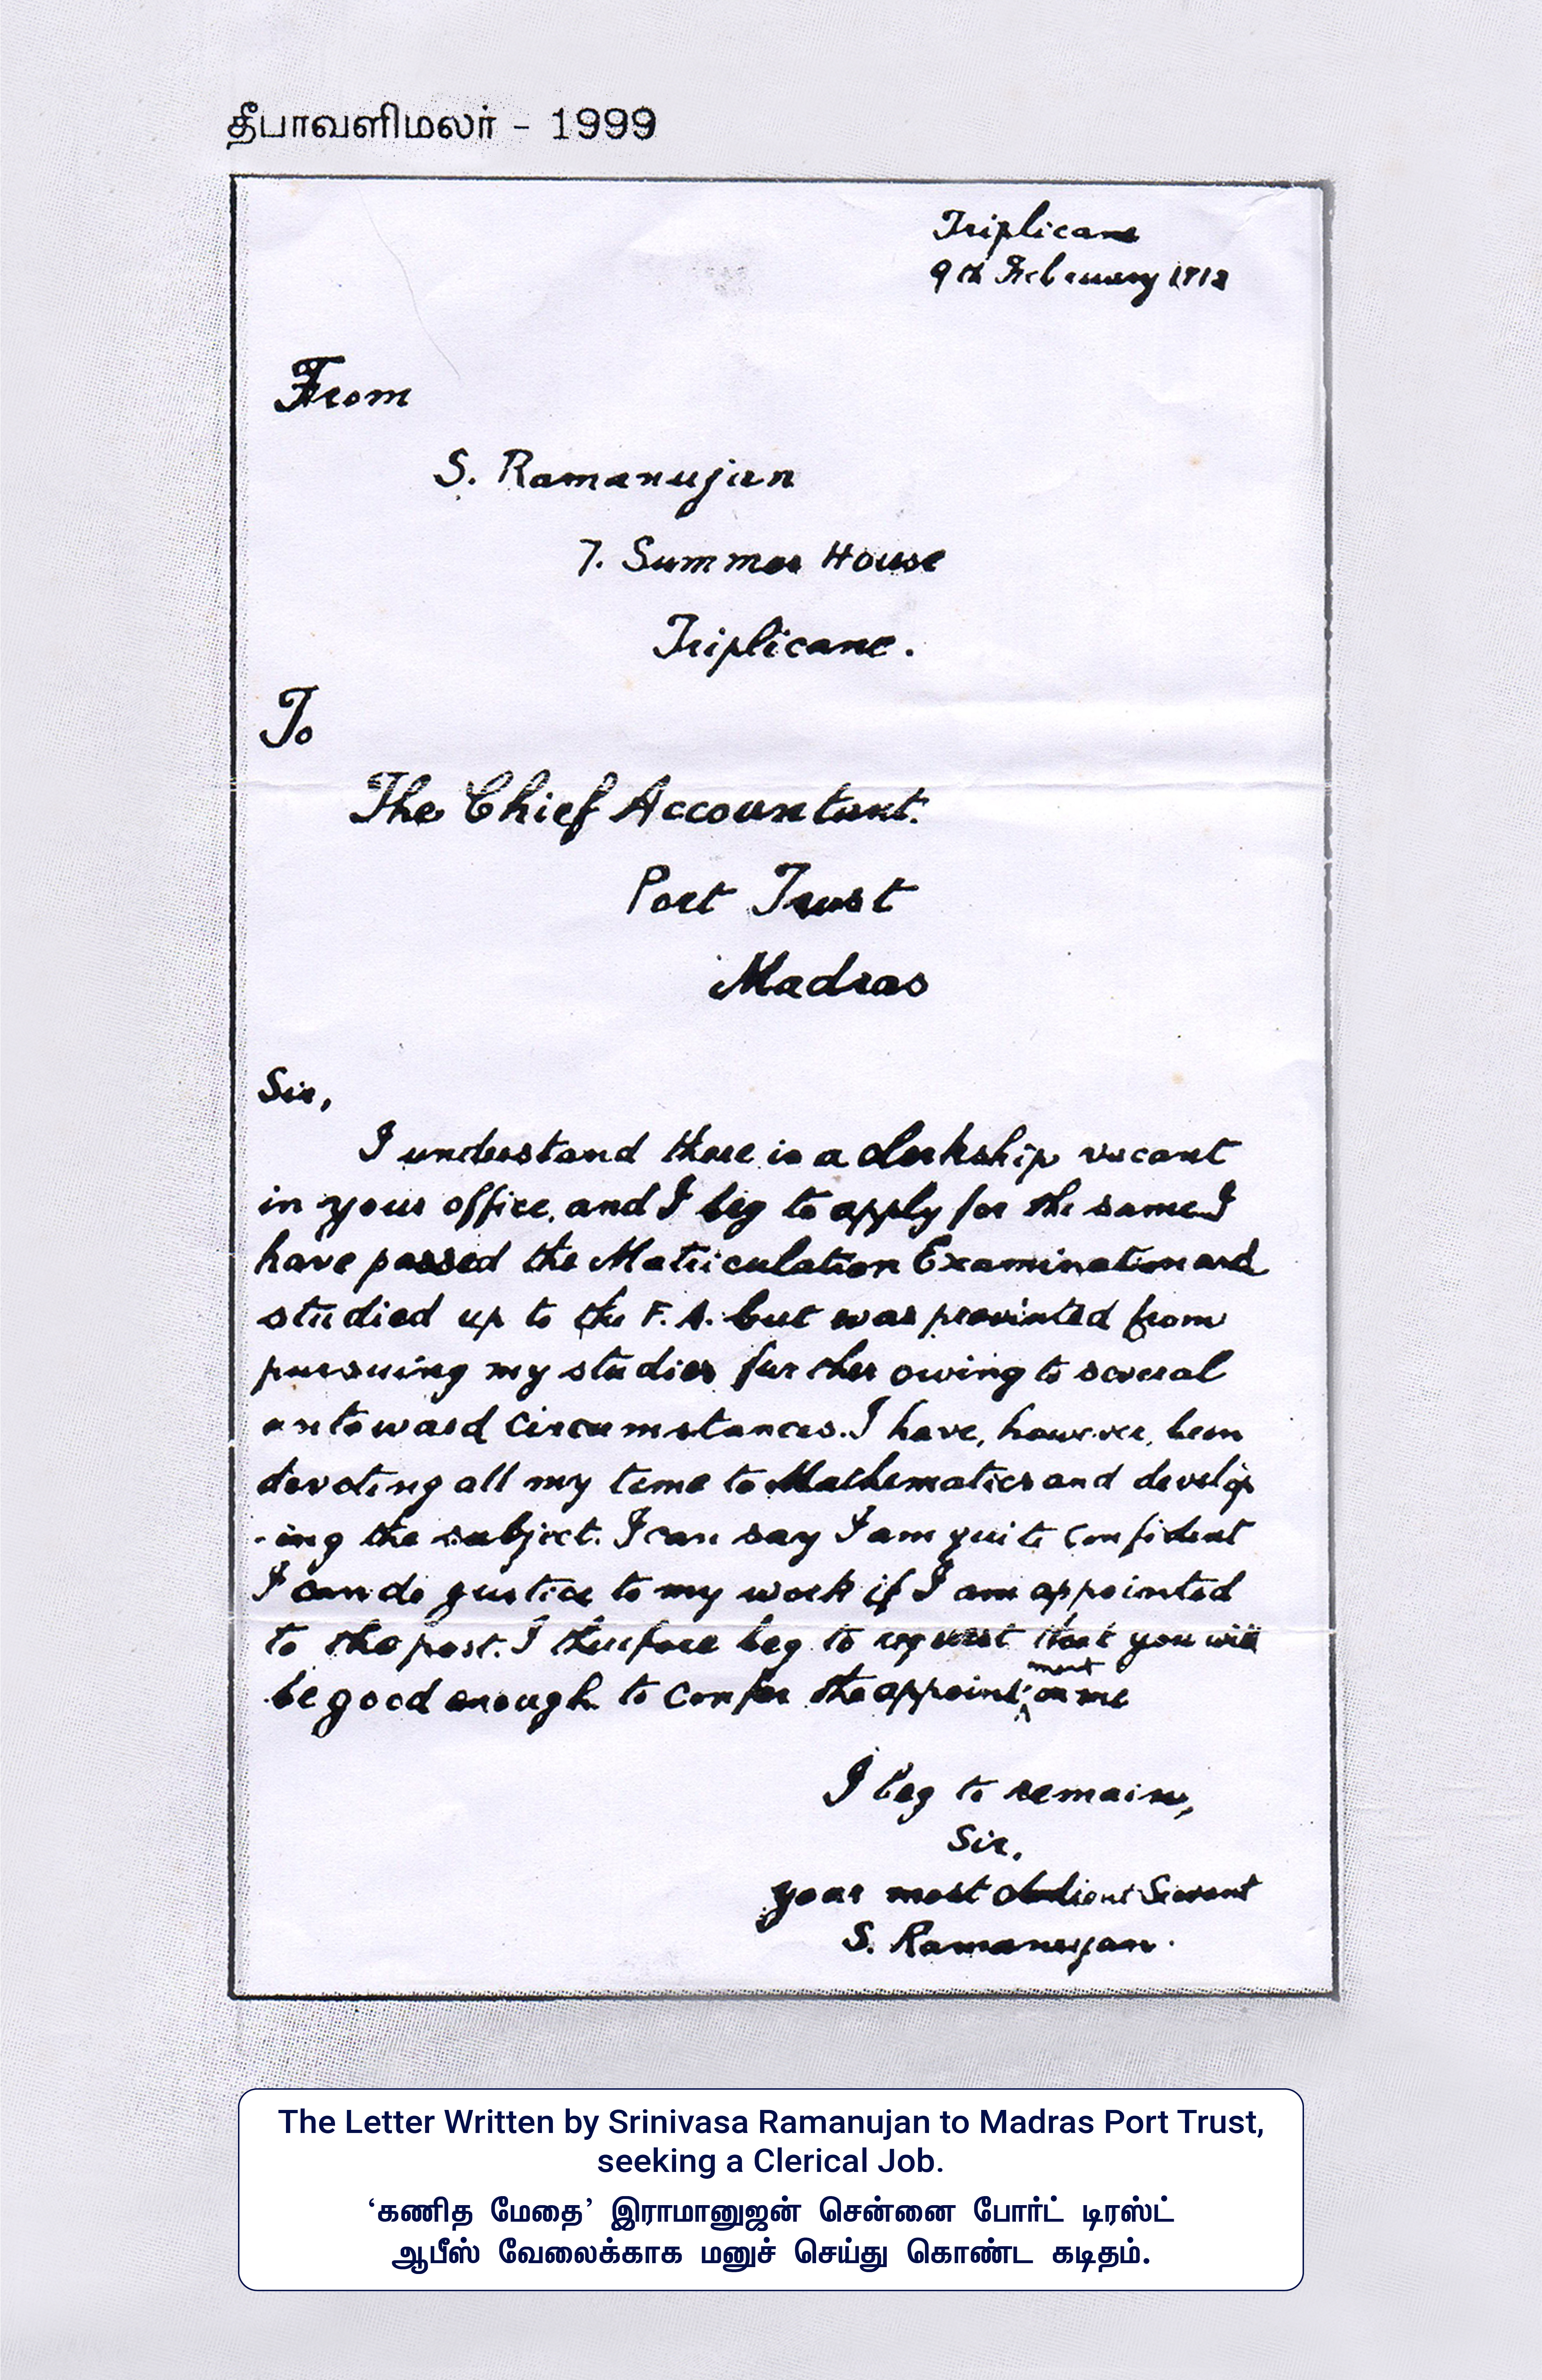 தீபாவளிமலர் - 1999
Triplicane
9th February 1912
From
S. Ramanujan
7. Summer House
Triplicane.
To
The Chief Accountant.
Port Trust
Madras
Sir,
I understand there is a clerkship vacant
in your office, and I beg to apply for the same. I
have passed the Matriculation Examination and
studied up to the F.A. but was prevented from
pursuing my studies further owing to several
untoward circumstances. I have, however, been
devoting all my time to Mathematics and develop
-ing the subject. I can say I am quite confident
I can do justice to my work if I am appointed
to the post. I therefore beg to request that you will
be good enough to confer the appointment on me
I beg to remain,
Sir,
your most obedient Servant
S. Ramanujan.
The Letter Written by Srinivasa Ramanujan to Madras Port Trust,
seeking a Clerical Job.
‘கணித மேதை’ இராமானுஜன் சென்னை போர்ட் டிரஸ்ட்
ஆபீஸ் வேலைக்காக மனுச் செய்து கொண்ட கடிதம்.